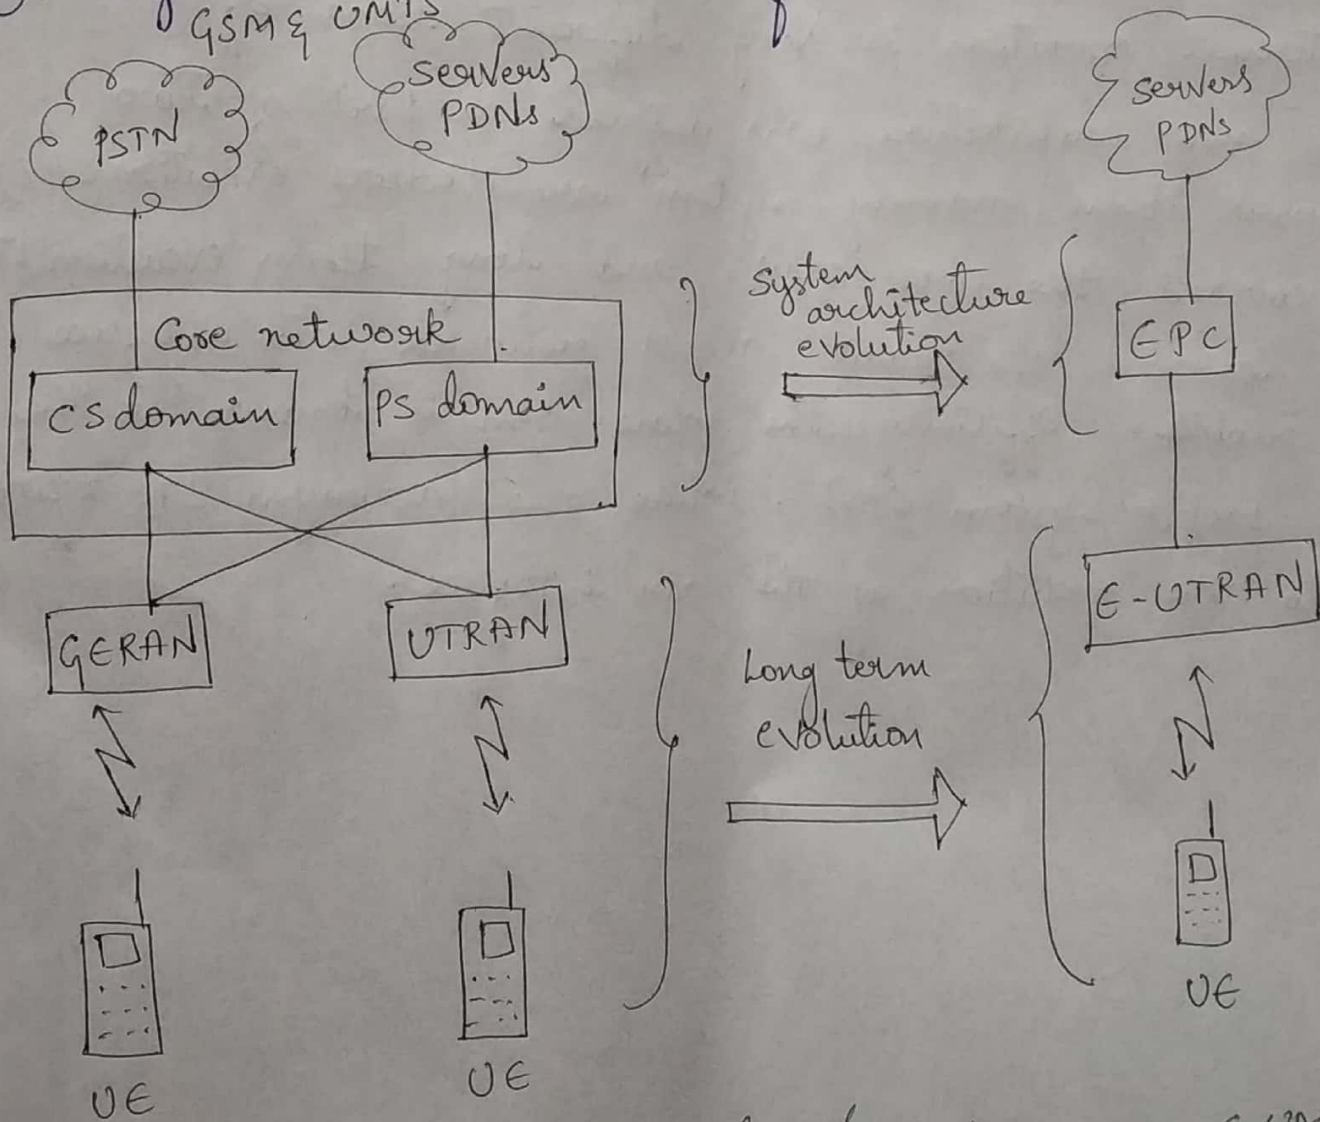 GSM & UMTS
PSTN
Servers
PDNs
Servers
PDNs
Core network
CS domain
PS domain
System
architecture
evolution
EPC
GERAN
UTRAN
E-UTRAN
Long term
evolution
UE
UE
UE